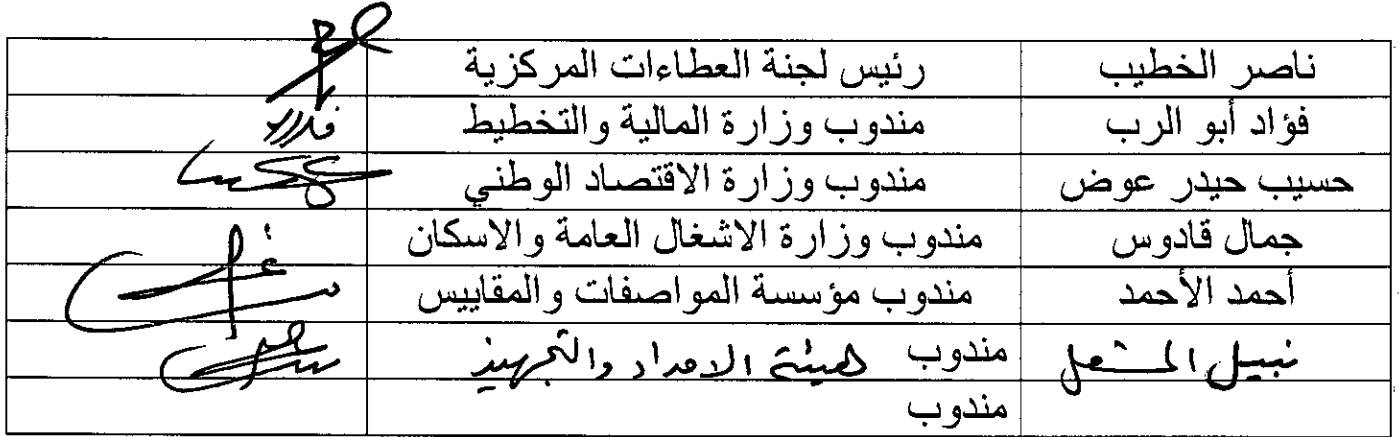 ناصر الخطيب رئيس لجنة العطاءات المركزية
فؤاد أبو الرب مندوب وزارة المالية والتخطيط
حسيب حيدر عوض مندوب وزارة الاقتصاد الوطني
جمال قادوس مندوب وزارة الاشغال العامة والاسكان
أحمد الأحمد مندوب مؤسسة المواصفات والمقاييس
نبيل مندوب هيئة الامداد والتجهيز
مندوب